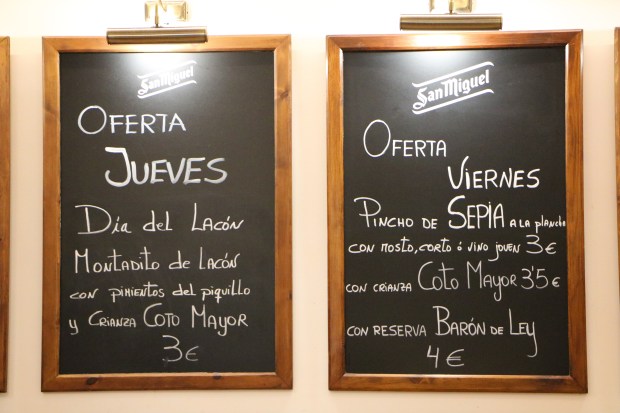 San Miguel
OFERTA
JUEVES
Día del LACÓN
MONTADITO de LACÓN
con pimientos del piquillo
y CRIANZA COTO MAYOR
3€
San Miguel
OFERTA
VIERNES
PINCHO DE SEPIA A LA plancha
CON MOSTO, CORTO Ó VINO JOVEN 3€
CON CRIANZA COTO MAYOR 3'5€
CON RESERVA BARÓN DE LEY
4€